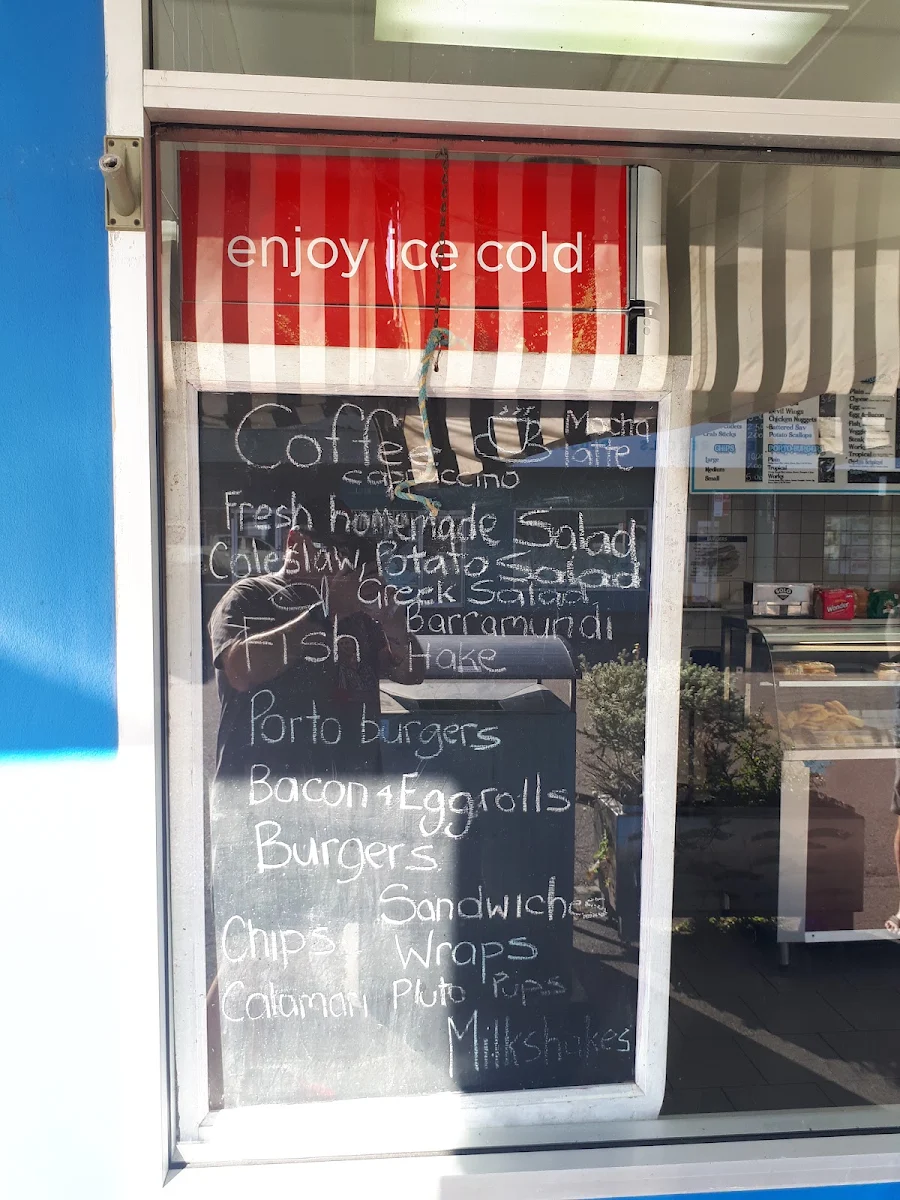 enjoy ice cold
Coffee Mocha
latte
cappiccino
Fresh homemade Salad
Coleslaw, Potato Salad
Greek Salad
Fish Barramundi
Hake
Porto burgers
Bacon + Egg rolls
Burgers
Sandwiches
Chips Wraps
Calamari Pluto Pups
Milkshakes
Devil Wings
Chicken Nuggets
Battered Sav
Crab Sticks
Potato Scallops
CHIPS
Large
Medium
Small
Plain
Tropical
Works
Plain
Cheese
Egg
Egg & Bacon
Fish
Steak
Works